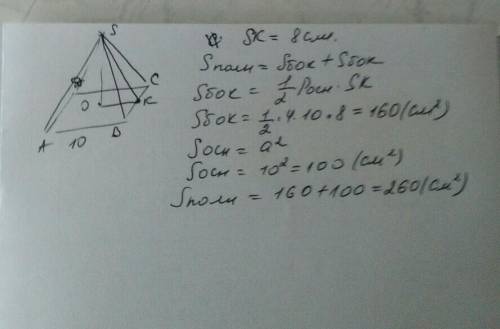 S
C
O
K
A 10 B
SK = 8 см.
Sполн = Sбок + Sбок
Sбок = 1/2 Pосн · SK
Sбок = 1/2 · 4 · 10 · 8 = 160 (см²)
Sосн = a²
Sосн = 10² = 100 (см²)
Sполн = 160 + 100 = 260 (см²)